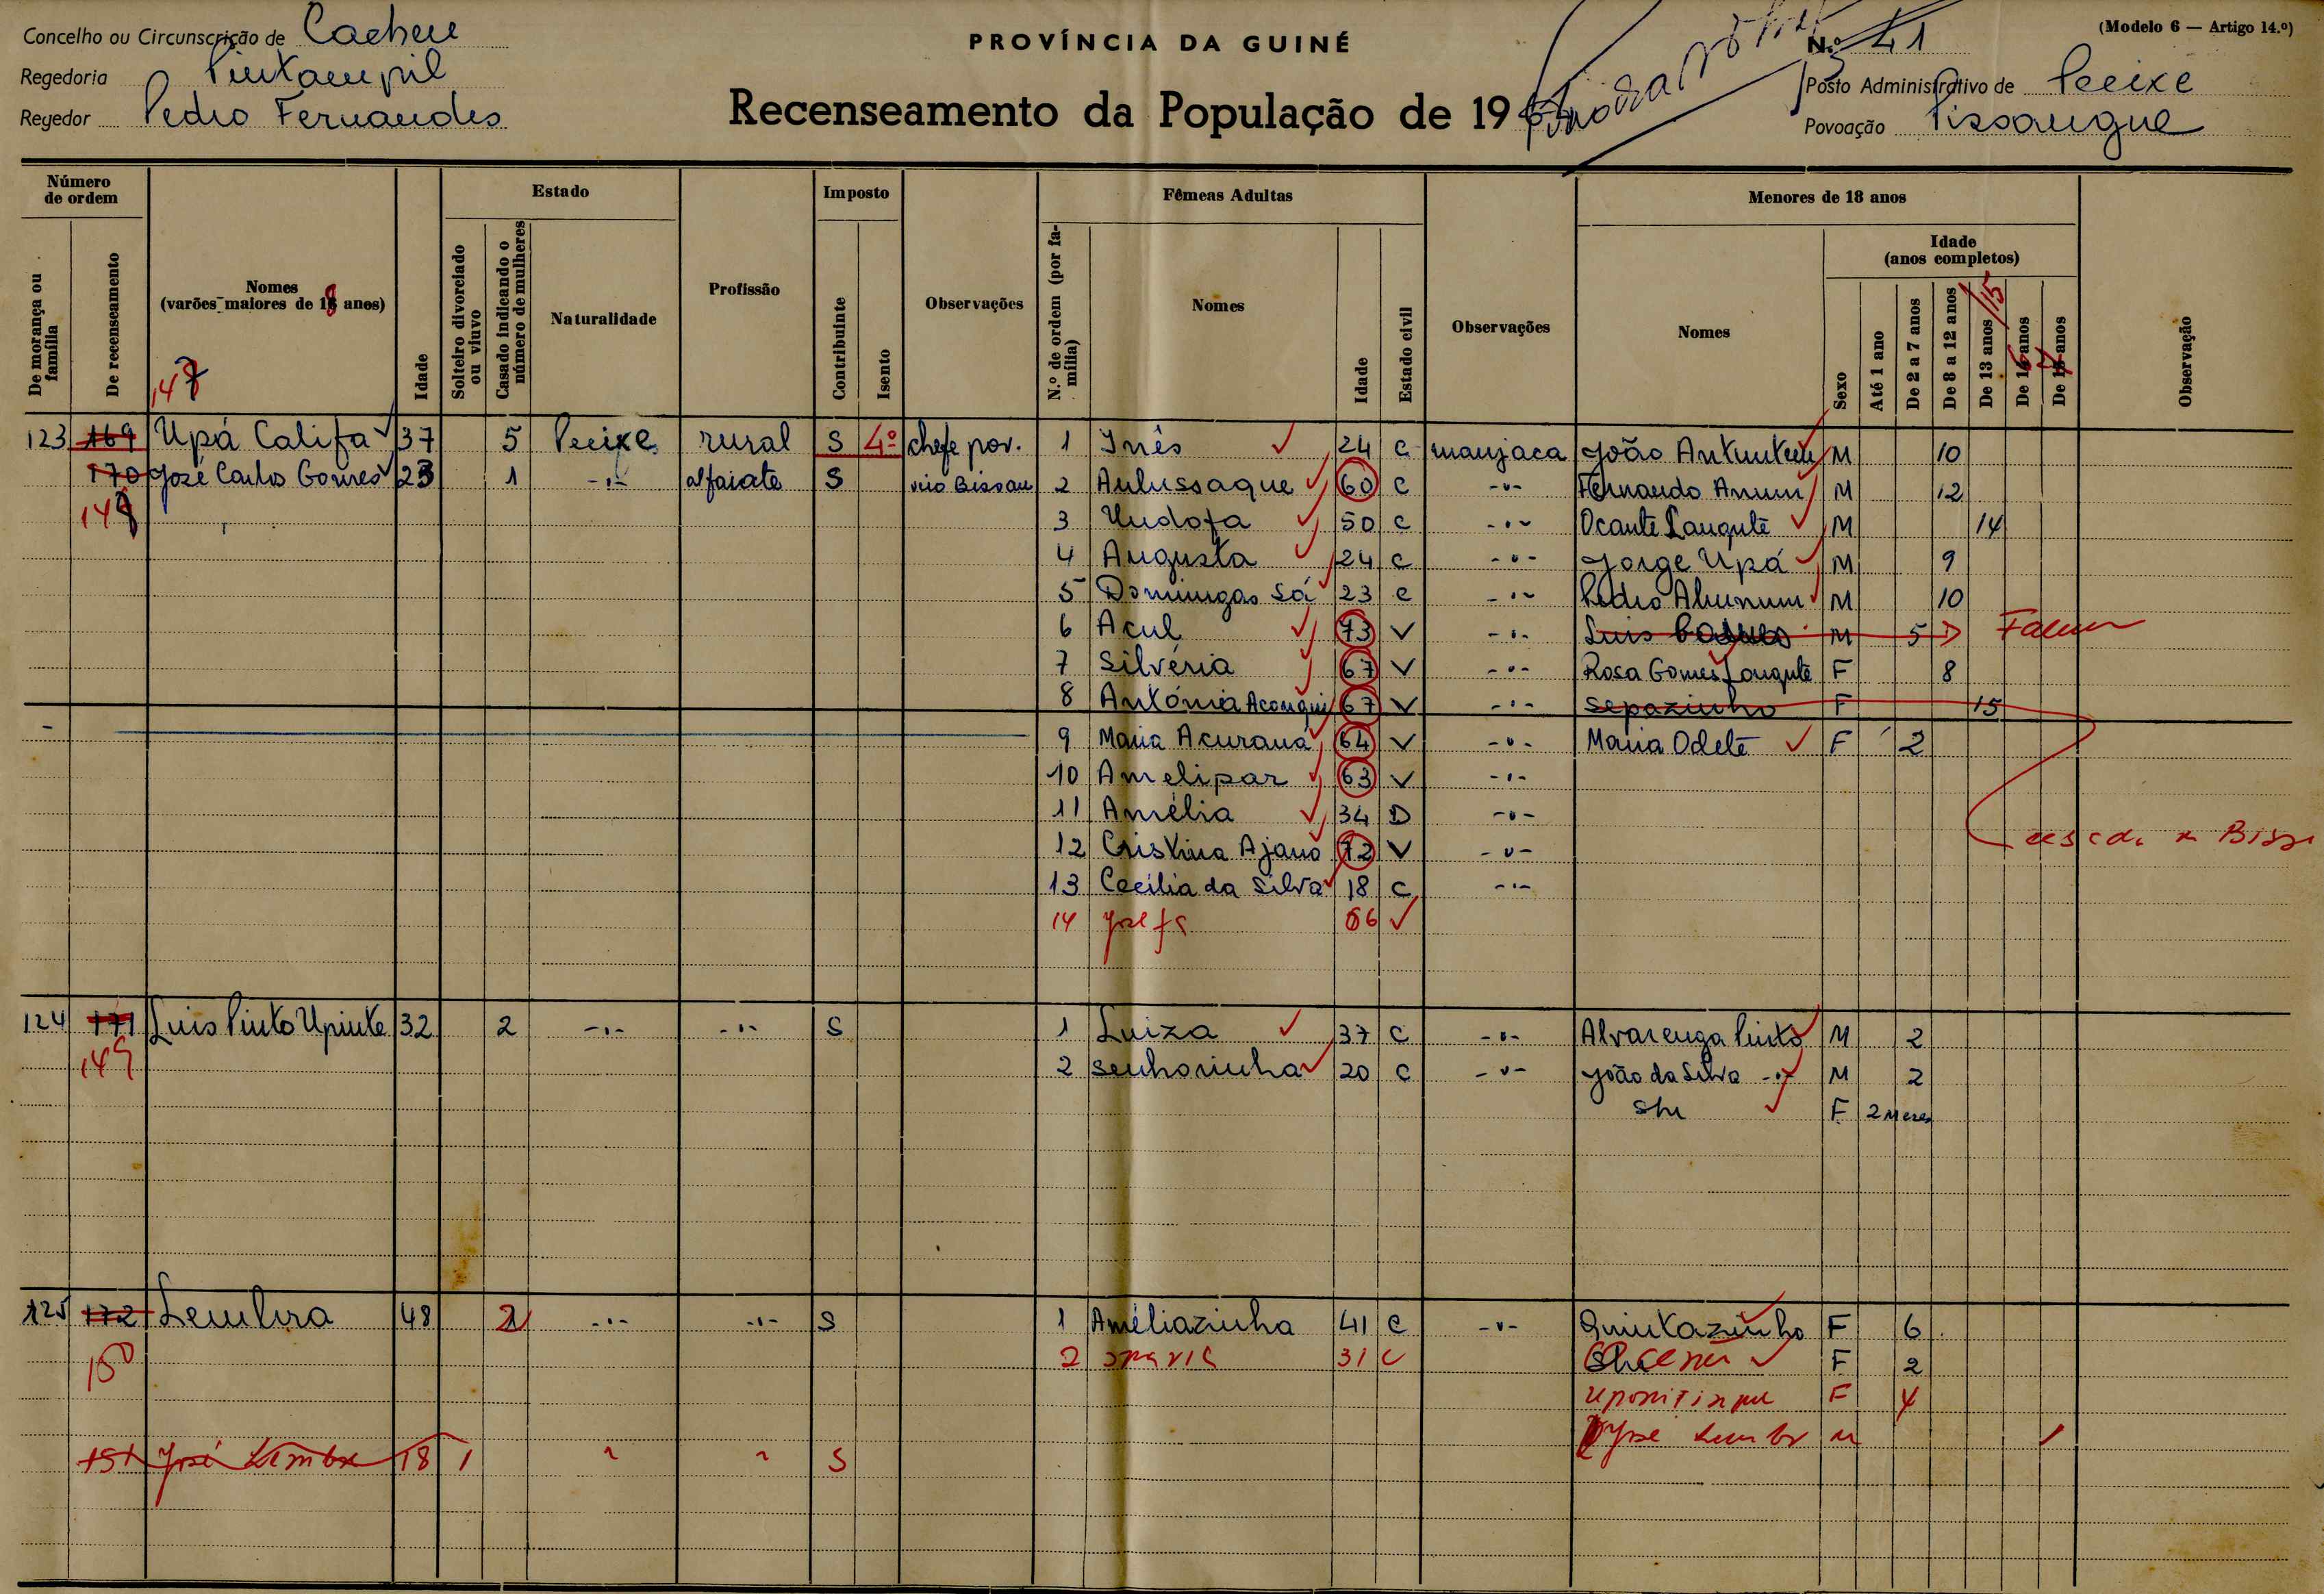 Concelho ou Circunscrição de Cacheu
PROVÍNCIA DA GUINÉ
N.º 41
(Modelo 6 — Artigo 14.º)
Regedoria
Posto Administrativo de Pecixe
Regedor Pedro Fernandes
Recenseamento da População de 19
Povoação
Número de ordem
De morança ou família
De recenseamento
Nomes (varões maiores de 18 anos)
147
Idade
Estado
Solteiro divorciado ou viuvo
Casado indicando o número de mulheres
Naturalidade
Profissão
Imposto
Contribuinte
Isento
Observações
Fêmeas Adultas
N.º de ordem (por família)
Nomes
Idade
Estado civil
Observações
Menores de 18 anos
Nomes
Sexo
Idade (anos completos)
Até 1 ano
De 2 a 7 anos
De 8 a 12 anos
De 13 anos /15
De 16 anos
De 17 anos
Observação
123 169 Upá Califa 37 5 Pecixe rural S 4º chefe pov. 1 Inês 24 C manjaca João M 10
170 José Carlos Gomes 23 1 -"- alfaiate S veio Bissau 2 Aulussaque 60 C -"- Fernando Anum M 12
148 3 Undofa 50 C -"- Ocante Langute M 14
4 Augusta 24 C -"- Jorge Upá M 9
5 Domingas Sá 23 C -"- Pedro M 10
6 Acul 73 V -"- Luis M 5 D
7 Silvéria 67 V -"- Rosa Gomes Langute F 8
8 Antónia 67 V -"- Sepazinho F 15
9 Maria Acurana 64 V -"- Maria Odete F 2
10 Amelipar 63 V -"-
11 Amélia 34 D -"-
12 Cristina Ajano 72 V -"-
13 Cecília da Silva 18 C -"-
14 66 V
124 171 Luis Pinto Upinte 32 2 -"- -"- S 1 Luiza 37 C -"- Alvarenga Pinto M 2
149 2 Senhorinha 20 C -"- João da Silva -"- M 2
F 2 Meses
125 172 Lembra 48 2 -"- -"- S 1 Améliazinha 41 C -"- Quintazinho F 6
150 2 31 C F 2
F 4
José M
151 José 18 1 " " S